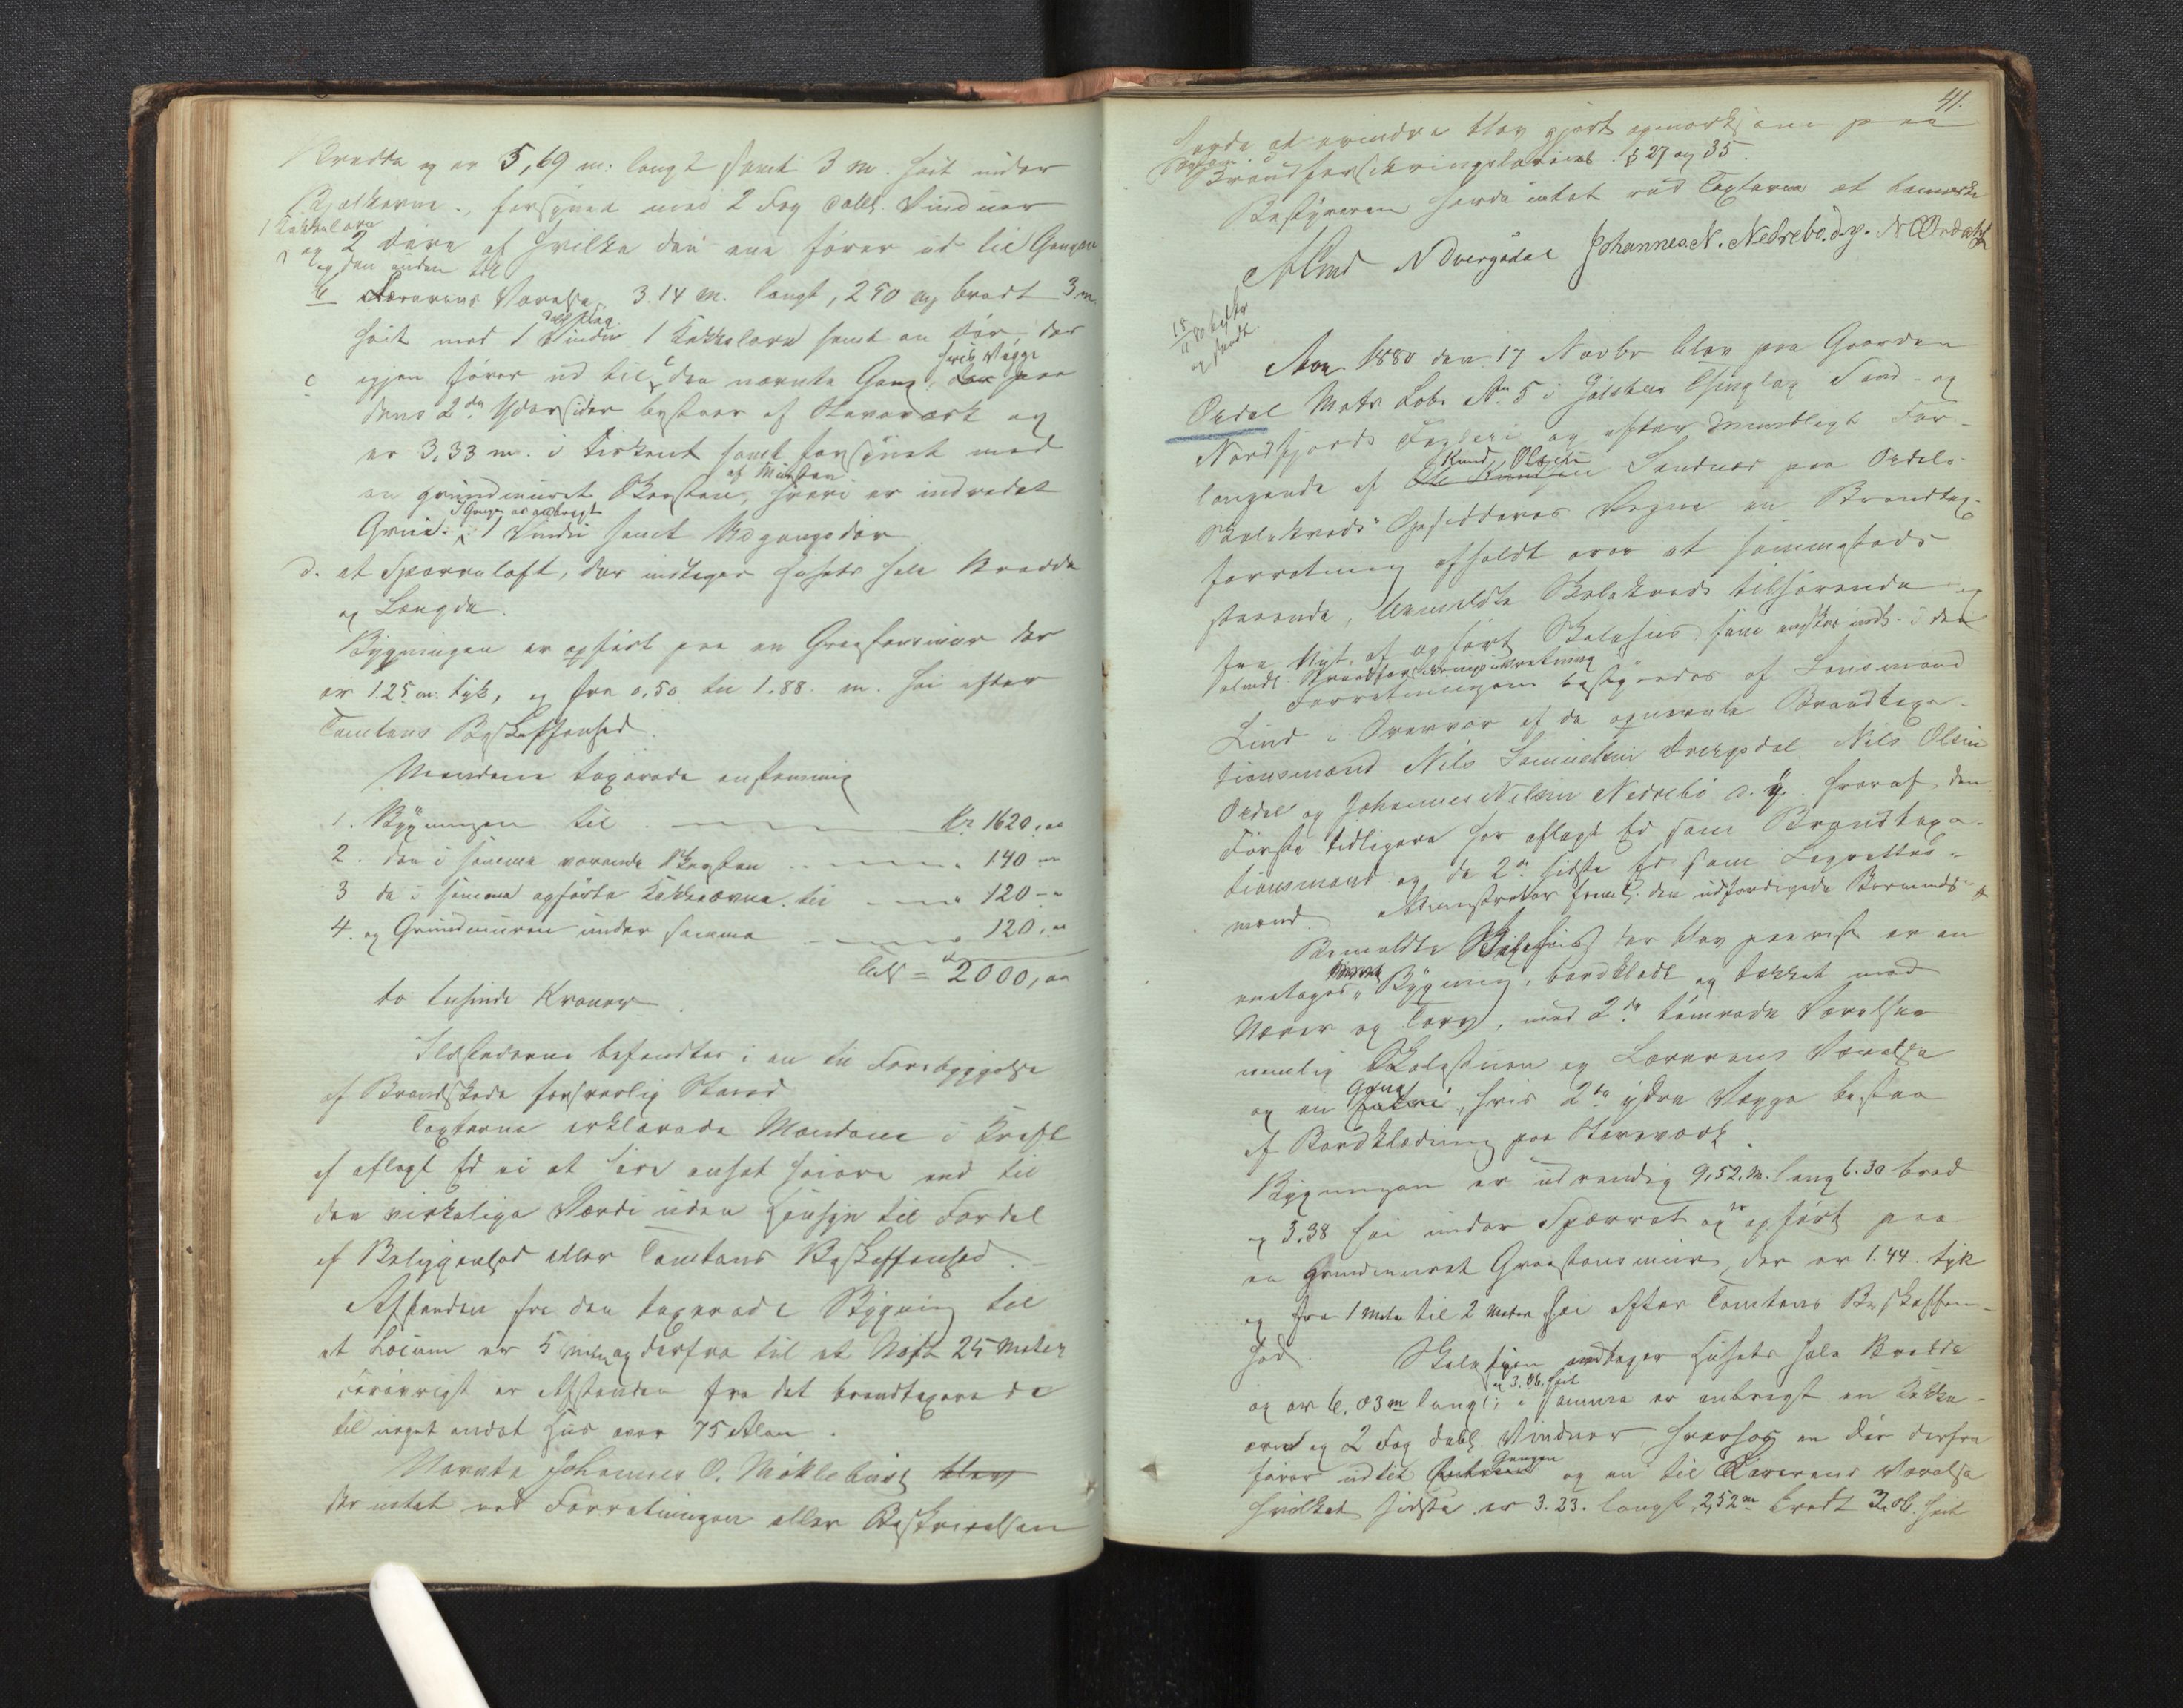 Bredde og er 5,69 m: langt samt 3 m. høit under
Bjelkerne, forsynet med 2 Fag dobb. Vinduer
1 Kakkelovn
og 2 Døre af hvilke den ene fører ud til Gangen
og den anden til
b Lærerens Værelse, 3.14 m. langt, 2 50 og bredt 3 m.
høit med 1 dobb. Fag Vindu 1 Kakkelovn samt en Dør der
c igjen fører ud til den nævnte Gang, hvis Vægge paa
dens 2de Ydersider bestaar af Stavværk og
er 3,33 m. i Firkant samt forsynet med
en grundmuret Skorsten af Mursten, hvori er indredet
Grue. I Gangen er anbragt 1 Vindu samt Udgangsdør
d. et Sperreloft, der indtager Husets hele Bredde
og Længde.
Bygningen er opført paa en Graastensmur der
er 1.25 m. tyk, og fra 0,50 til 1.88. m. høi efter
Tomtens Beskaffenhed.
Mændene taxerede enstemmig
1. Bygningen til Kr 1620,00
2. den i samme værende Skorsten 140 "
3 de i samme opførte Kakkelovne til 120 - "
4. og Grundmuren under samme 120,00
Tils = 2000,00
to tusinde Kroner.
Ildstederne befandtes i en til Forebyggelse
af Brandskade forsvarlig Stand
Taxterne erklærede Mændene i Kraft
af aflagt Ed ei at være ansat høiere end til
den virkelige Værdi uden Hensyn til Fordel
af Beliggenhed eller Tomtens Beskaffenhed.
Afstanden fra den taxerede Bygning til
et Locum er 5 meter og derfra til et Nøst 25 meter
iøvrigt er Afstanden fra det brandtaxerede
til noget andet Hus over 75 Alen.
Nævnte Johannes O. Møklebust blev
intet ved Forretningen eller Beskrivelsen
41.
havde at erindre blev gjort opmærksom paa
Brandforsikringslovens § 27 og 35.
Bestyreren havde intet ved Taxterne at bemærke
A Lind N Dvergsdal Johannes. N. Nedrebø. d.y. N O Ordahl
Aar 1880 den 17 Novbr blev paa Gaarden
Ordal Matr. Løbe No 5 i Jølster Thinglag Sønd- og
Nordfjords Fogderi og efter mundtligt For-
langende af Knud Olsen Sandnes paa Ordals
Skolekreds' Opsidderes Vegne en Brandtax-
forretning afholdt over et sammesteds
staaende, bemeldte Skolekreds tilhørende
fra Nyt af opført Skolehus som ønskes inds. i den
almdl. Brandforsikringsindretning
Forretningen bestyredes af Lensmand
Lind i Overvær af de opnævnte Brandtaxa-
tionsmænd Nils Samuelsen Dvergsdal Nils Olsen
Ordal og Johannes Nilsen Nedrebø d. y. hvoraf den
Første tidligere har aflagt Ed som Brandtaxa-
tionsmand og de 2de sidste Ed som Lagrettes-
mænd. Rekvirenten freml. den udfærdigede
Bemeldte Skolehus der blev paavist er en
enetages Bygning, bordklædt og tækket med
Næver og Torv, med 2de tømrede Værelser
nemlig Skolestuen og Lærerens Værelse
og en Gang, hvis 2de ydre Vægge bestaa
af Bordklædning paa Stavværk.
Bygningen er udvendig 9,52. m. lang 6.30 bred
og 3.38 høi under Sperret og er opført paa
en grundmuret Graastensmur, der er 1.44. tyk
og fra 1 meter til 2 meter høi efter Tomtens Beskaffen-
hed. Skolestuen indtager Husets hele Bredde
og er 6.03 m langt, og 3.06. høit i samme er anbragt en Kakke-
lovn og 2 Fag dobb. Vinduer hvorhos en Dør derfra
fører ud til Gangen og en til Lærerens Værelse
hvilket sidste er 3.23. langt, 2,52 m bredt 3.06. høit